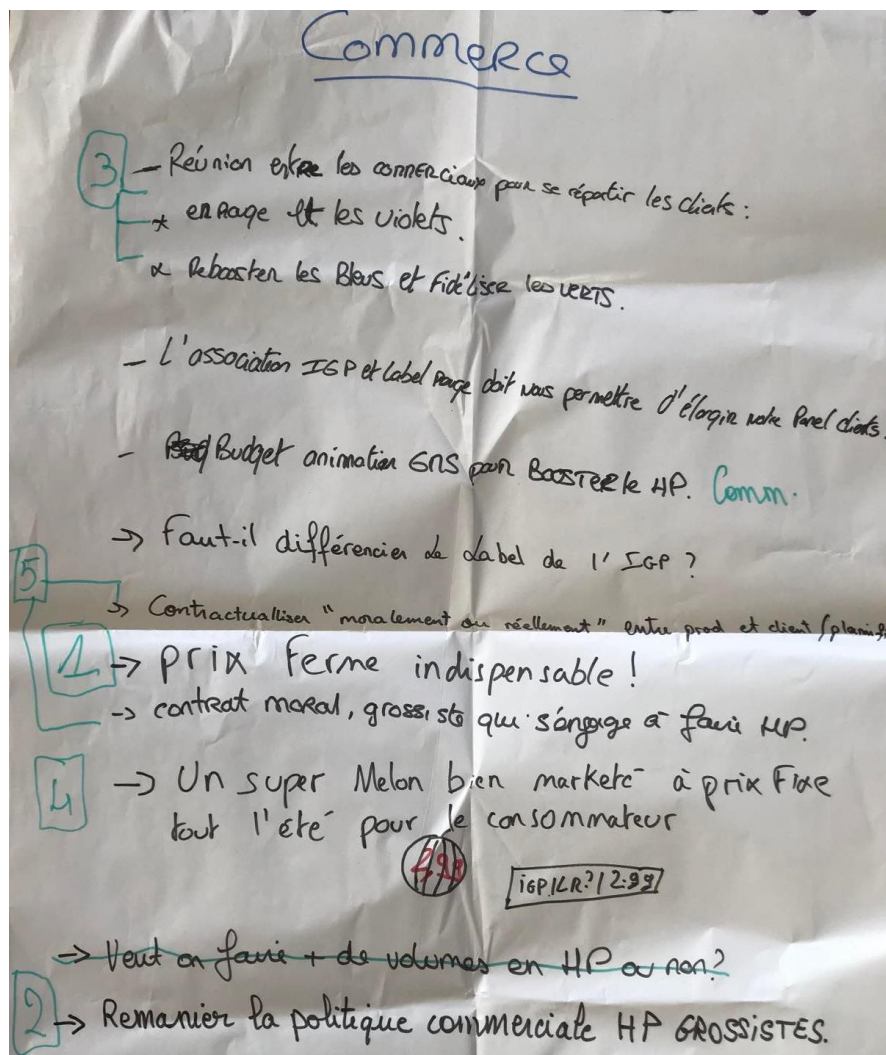 Commerce
3 – Réunion entre les commerciaux pour se répartir les clients :
* en Rage et les violets.
* Rebooster les Bleus et Fidéliser les VERTS.
– L'association IGP et Label Rouge doit nous permettre d'élargir notre Panel clients.
– Budget animation GMS pour BOOSTER le HP. Comm.
→ Faut-il différencier le Label de l'IGP ?
5
→ Contractualliser "moralement ou réellement" entre prod et client (planif
1 → prix Ferme indispensable !
→ contrat moral, grossiste qui s'engage à faire HP.
4 → Un super Melon bien marketé à prix Fixe
tout l'été pour le consommateur
iGP/LR?/2.99
→ Veut on faire + de volumes en HP ou non?
2 → Remanier la politique commerciale HP GROSSiSTES.